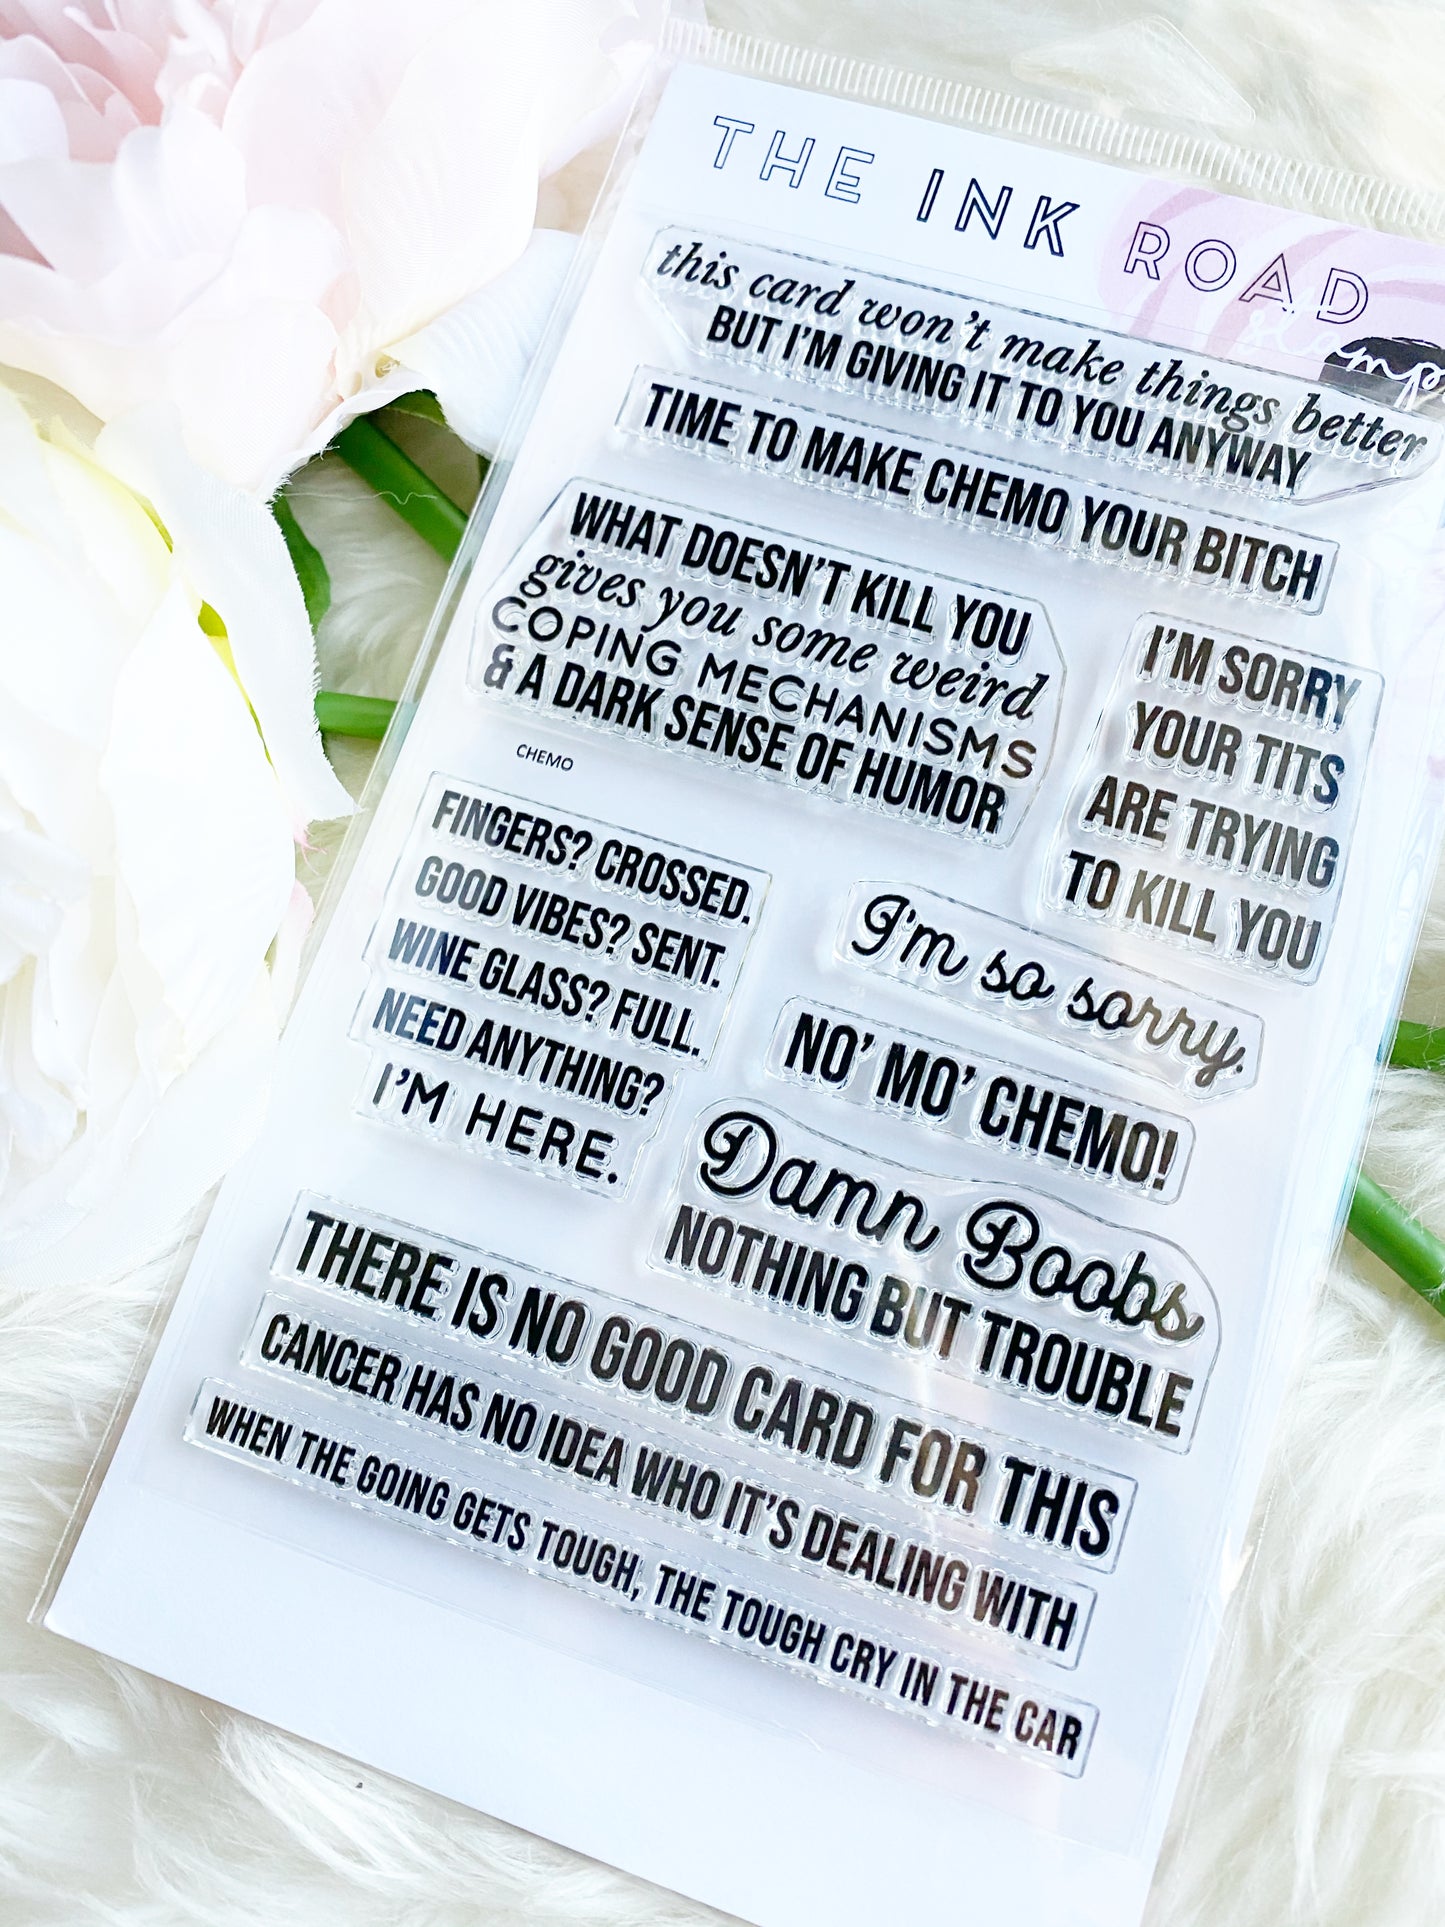 THE INK ROAD
stamp
this card won't make things better
BUT I'M GIVING IT TO YOU ANYWAY
TIME TO MAKE CHEMO YOUR BITCH
WHAT DOESN'T KILL YOU
gives you some weird
COPING MECHANISMS
& A DARK SENSE OF HUMOR
I'M SORRY
YOUR TITS
ARE TRYING
TO KILL YOU
CHEMO
FINGERS? CROSSED.
GOOD VIBES? SENT.
WINE GLASS? FULL.
NEED ANYTHING?
I'M HERE.
I'm so sorry.
NO' MO' CHEMO!
Damn Boobs
NOTHING BUT TROUBLE
THERE IS NO GOOD CARD FOR THIS
CANCER HAS NO IDEA WHO IT'S DEALING WITH
WHEN THE GOING GETS TOUGH, THE TOUGH CRY IN THE CAR